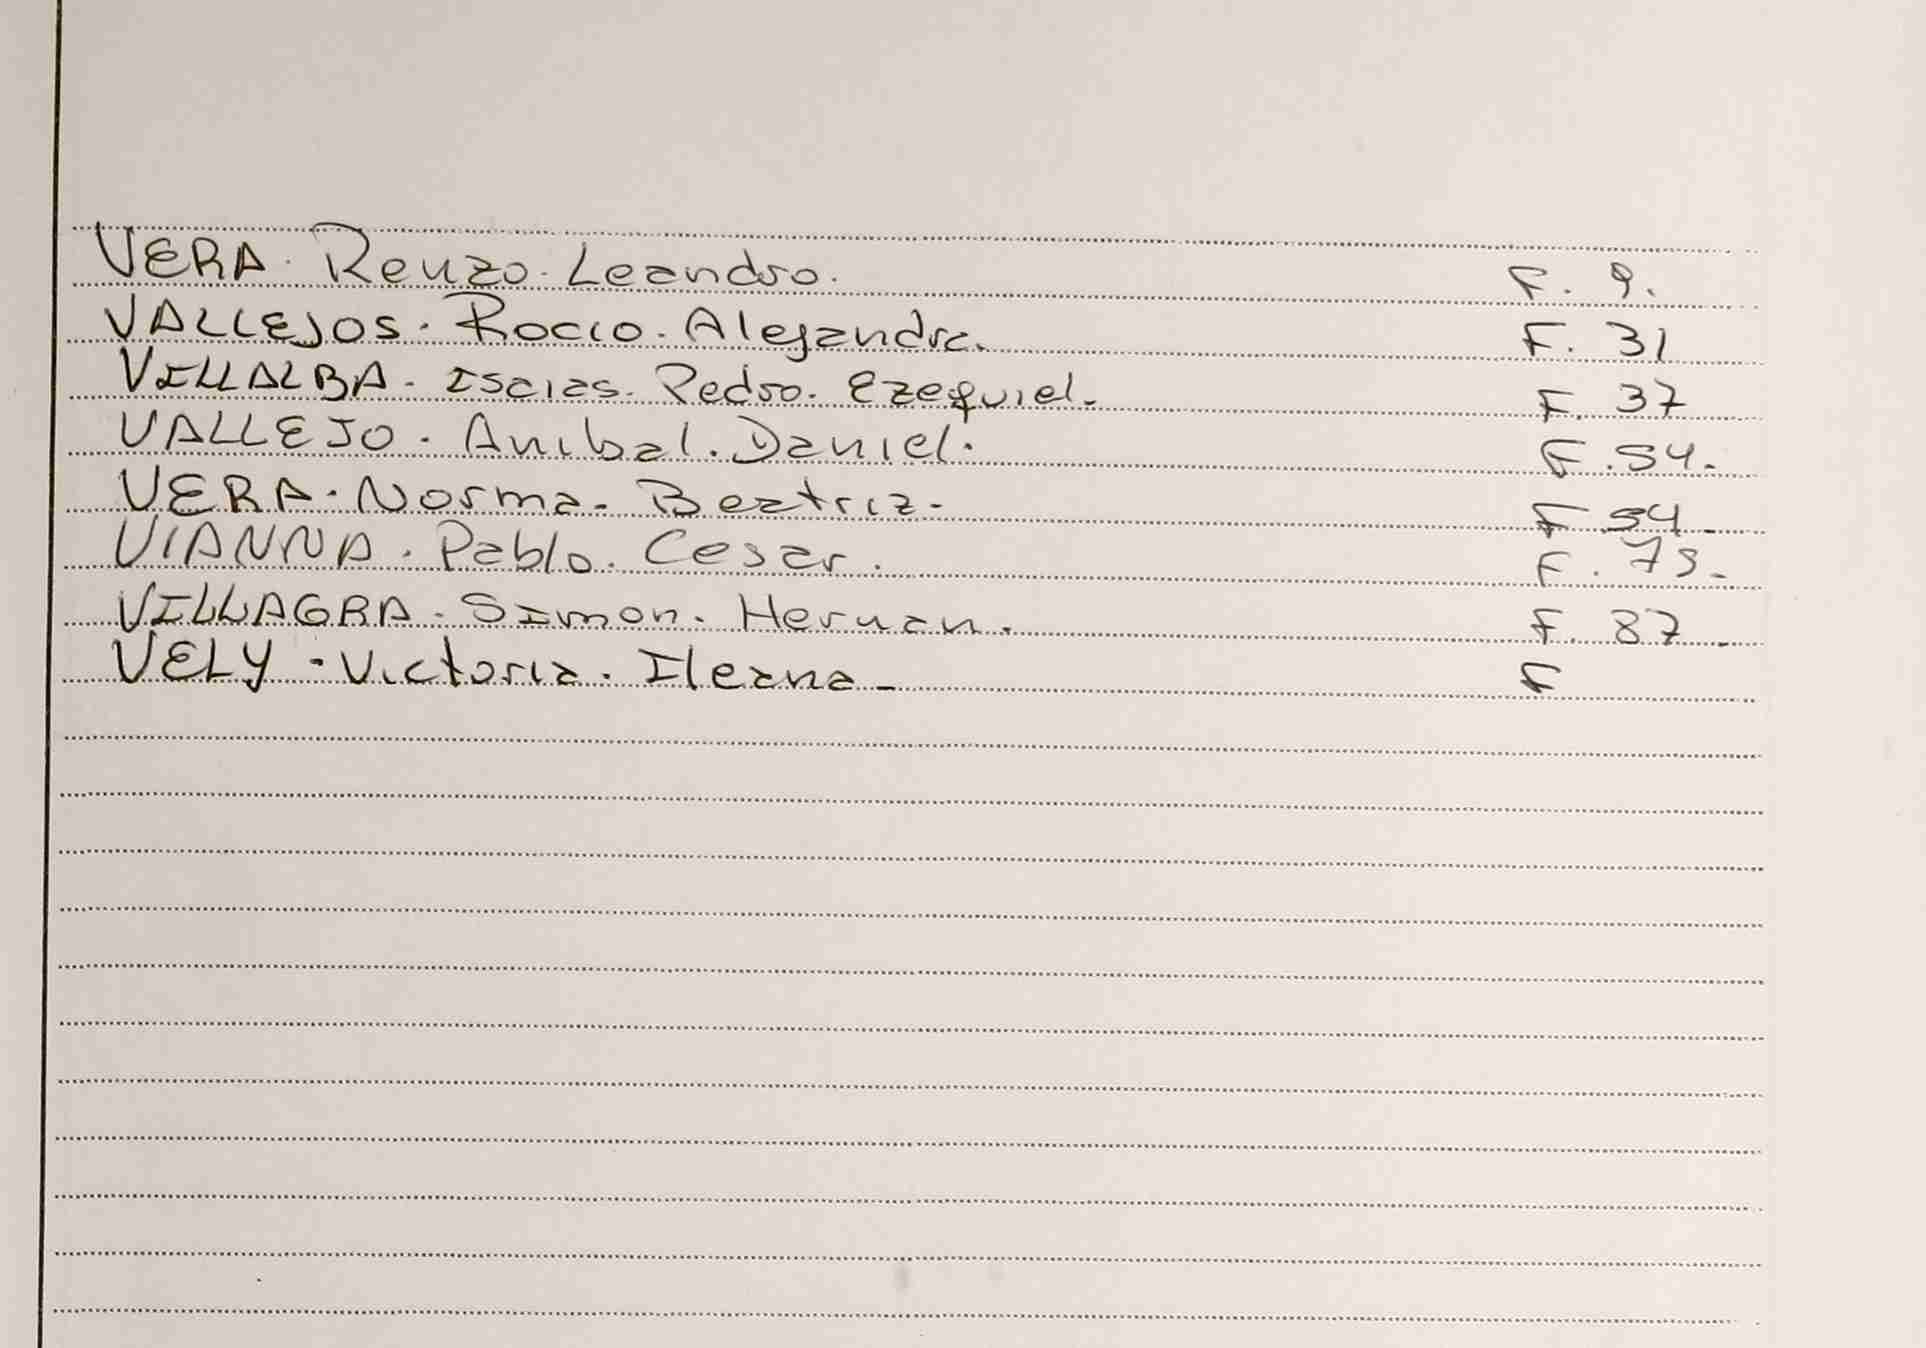 VERA. Renzo. Leandro. F. 9.
VALLEJOS. Rocio. Alejandra. F. 31
VILLALBA. Isaias. Pedro. Ezequiel. F. 37
VALLEJO. Anibal. Daniel. F. 54.
VERA. Norma. Beatriz. F. 54.
VIANNA. Pablo. Cesar. F. 73.
VILLAGRA. Simon. Hernan. F. 87
VELY. Victoria. Ileana F